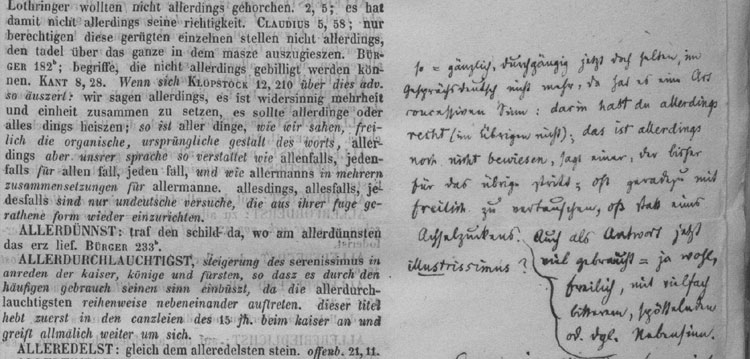 Lothringer wollten nicht allerdings gehorchen. 2, 5; es hat
damit nicht allerdings seine richtigkeit. CLAUDIUS 5, 58; nur
berechtigen diese gerügten einzelnen stellen nicht allerdings,
den tadel über das ganze in dem masze auszugieszen. BÜR-
GER 182ᵇ; begriffe, die nicht allerdings gebilligt werden kön-
nen. KANT 8, 28. Wenn sich KLOPSTOCK 12, 210 über dies adv.
so äuszert: wir sagen allerdings, es ist widersinnig mehrheit
und einheit zusammen zu setzen, es sollte allerdinge oder
alles dings heiszen; so ist aller dinge, wie wir sahen, frei-
lich die organische, ursprüngliche gestalt des worts, aller-
dings aber unsrer sprache so verstattet wie allenfalls, jeden-
falls für allen fall, jeden fall, und wie allermanns in mehrern
zusammensetzungen für allermanne. allesdings, allesfalls, je-
desfalls sind nur undeutsche versuche, die aus ihrer fuge ge-
rathene form wieder einzurichten.
ALLERDÜNNST: traf den schild da, wo am allerdünnsten
das erz lief. BÜRGER 233ᵇ.
ALLERDURCHLAUCHTIGST, steigerung des serenissimus in
anreden der kaiser, könige und fürsten, so dasz es durch den
häufigen gebrauch seinen sinn einbüszt, da die allerdurch-
lauchtigsten reihenweise nebeneinander auftreten. dieser titel
hebt zuerst in den canzleien des 15 jh. beim kaiser an und
greift allmälich weiter um sich.
ALLEREDELST: gleich dem alleredelsten stein. offenb. 21, 11.
so = gänzlich, durchgängig jetzt doch selten, im
Gesprächsdeutsch nicht mehr, da hat es eine Art
concessiven Sinn: darin hast du allerdings
recht (im übrigen nicht); das ist allerdings
noch nicht bewiesen, sagt einer, der bisher
für das übrige stritt; oft geradezu mit
freilich zu vertauschen, oft statt eines
Achselzuckens. Auch als Antwort jetzt
viel gebraucht = ja wohl,
freilich, mit vielfach
bitterem, spöttelnden
od. dgl. Nebensinn.
illustrissimus?